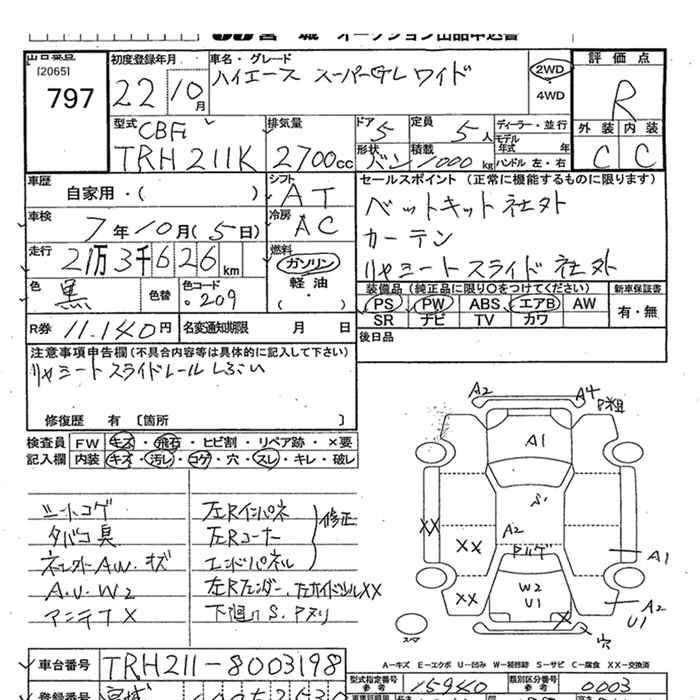 797
初度登録年月
22 10月
車名・グレード
ハイエース スーパーGL ワイド
2WD
4WD
評価点
R
外装 内装
C C
型式
CBF
TRH211K
排気量
2700cc
ドア
5
定員
5人
形状
バン
積載
1000kg
ディーラー・並行
モデル年式 年
ハンドル 左・右
車歴
自家用・( )
シフト
AT
車検
7年10月(5日)
冷房
AC
走行
21万3千626km
燃料
ガソリン
軽油
( ・ )
色
黒
色替
色コード
209
R券
11.140円
名変通知期限 月 日
セールスポイント (正常に機能するものに限ります)
ベットキット社外
カーテン
リヤシートスライド社外
装備品(純正品に限り○をつけてください)
PS PW ABS エアB AW
SR ナビ TV カワ
新車保証書
有・無
後日品
注意事項申告欄(不具合内容等は具体的に記入して下さい)
リヤシートスライドレールしぶい
修復歴 有 〔箇所 〕
検査員記入欄
FW キズ・飛石・ヒビ割・リペア跡・×要
内装 キズ・汚レ・コゲ・穴・スレ・キレ・破レ
シートコゲ
タバコ臭
A.U.W2
アンテナX
左Rインパネ
左Rコーナー
エンドパネル
修正
下廻りS.Pヌリ
A2
A4
A1
S
A2
XX
XX
XX
W2
U1
X
A1
A2
U1
穴
スペア
A-キズ E-エクボ U-凹み W-補修跡 S-サビ C-腐食 XX-交換済
車台番号
TRH211-8003198
型式指定番号
参考
15940
類別区分番号
参考
0003
登録番号